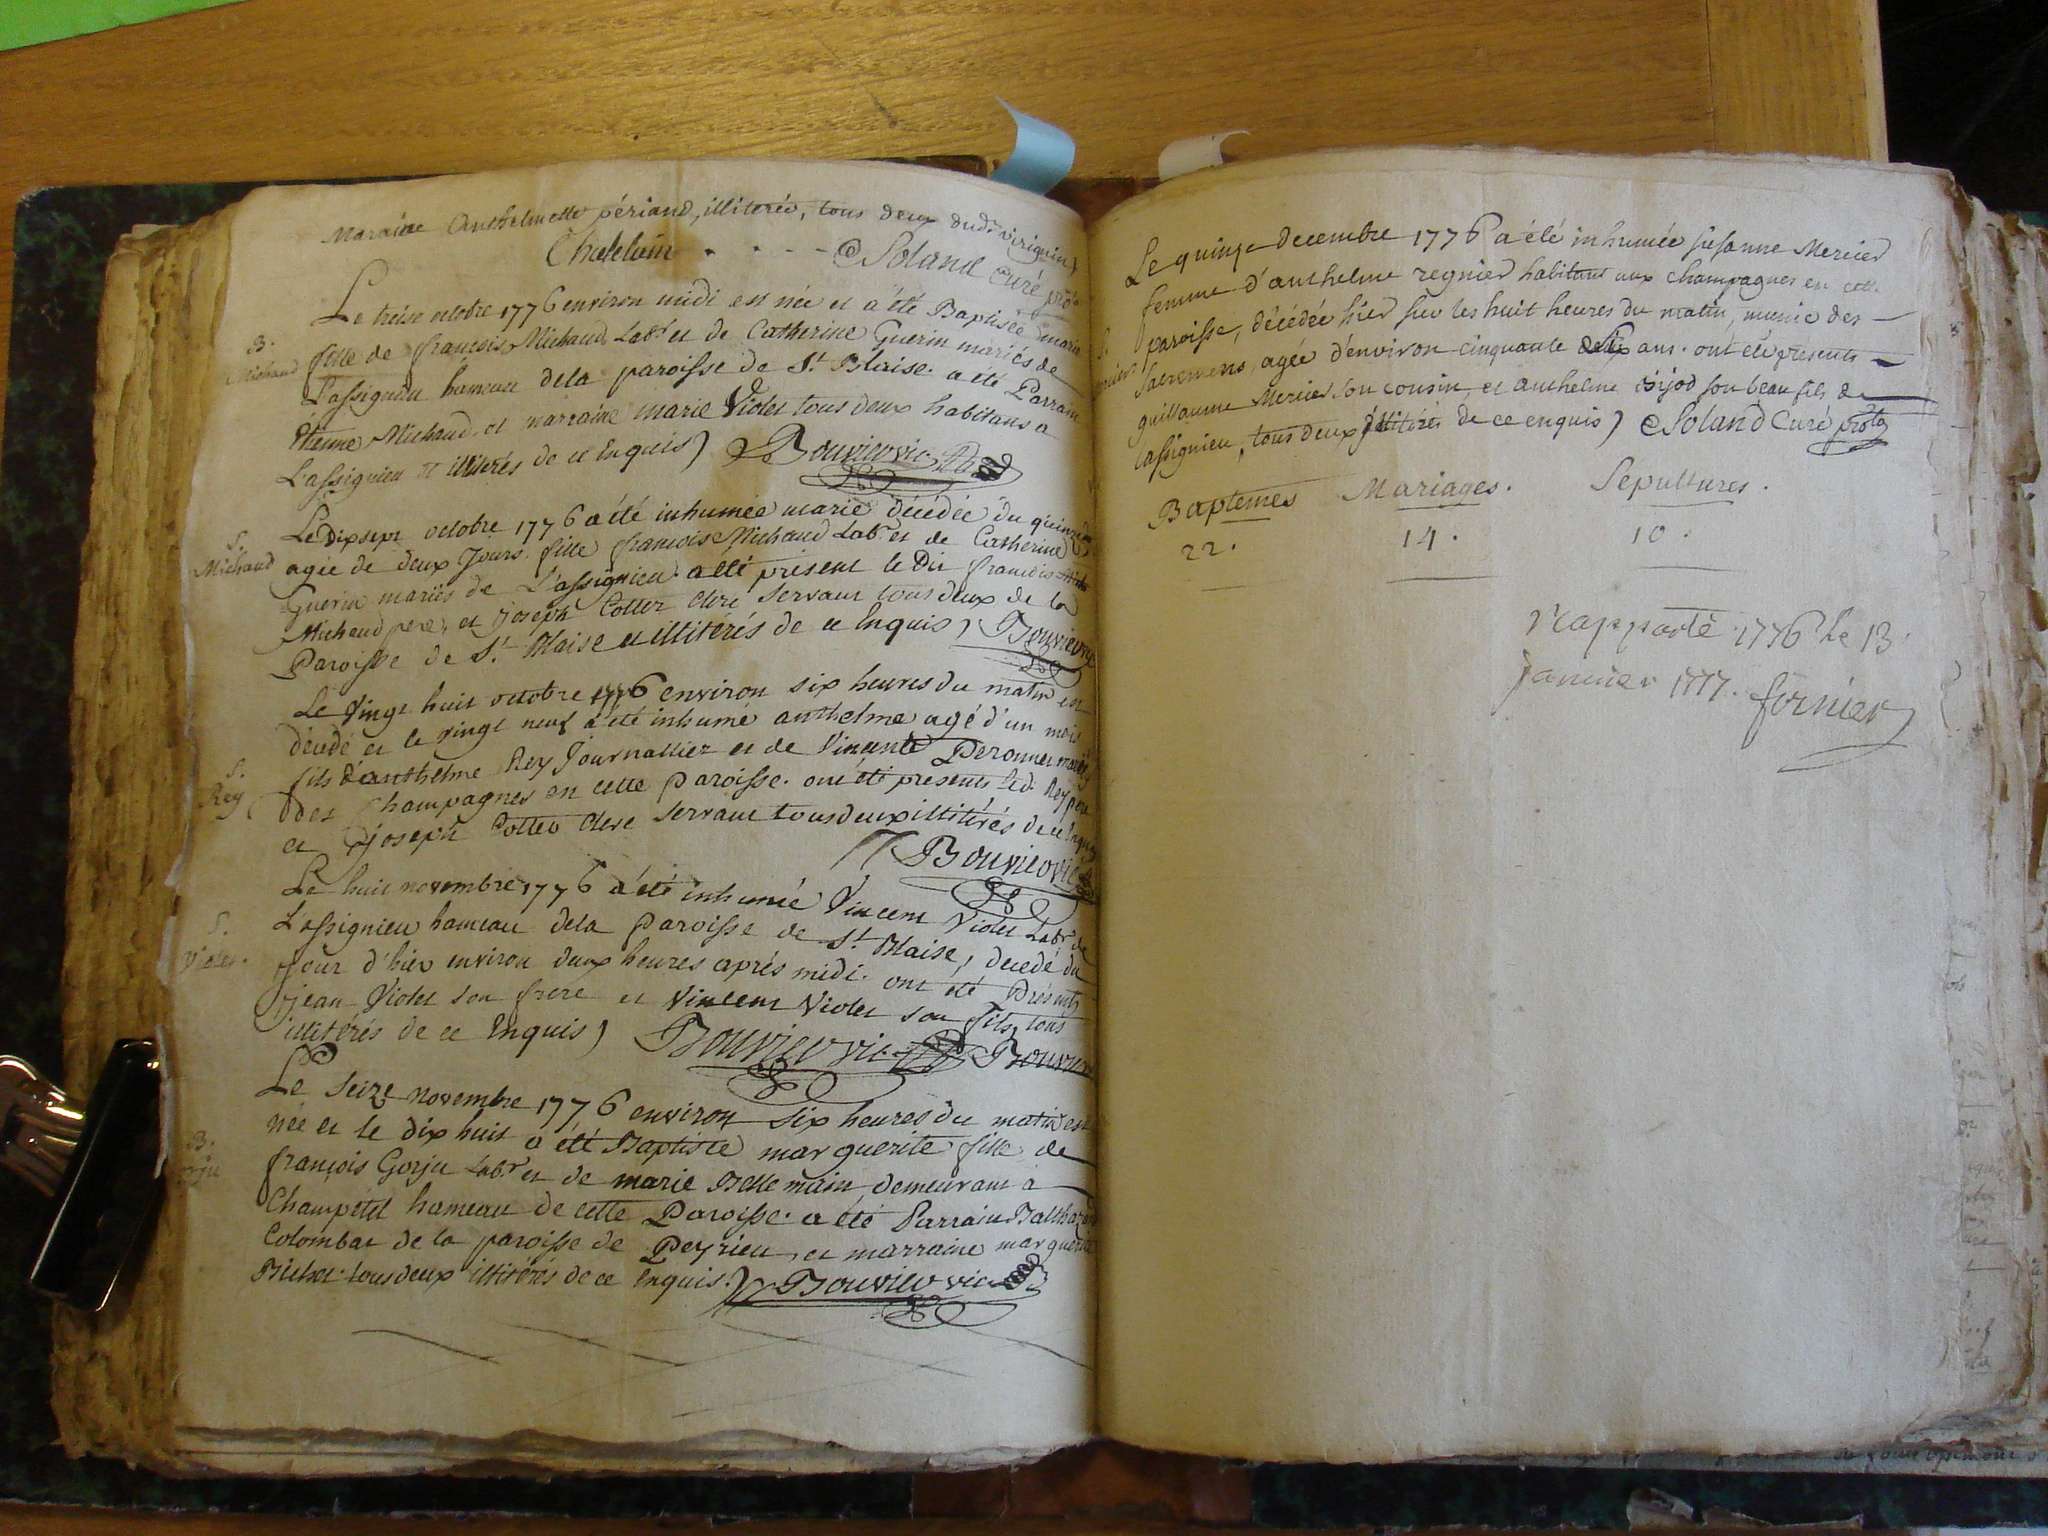 Maraine Anthelmette périand, illiterée, tous deux dud. virignin)
Chatelain . . . . - @ Soland Curé proto
B.
Michaud
Le treise octobre 1776 environ midi est née et a été Baptisée marie
fille de françois Michaud Labr. et de Catherine Guerin mariés de
Lassignieu hameau dela paroisse de St. Blaise. a été Parrain
Etienne Michaud. et marraine marie Violet tous deux habitans a
Lassignieu et illiterés de ce Enquis) Bouvier vic.
S.
Michaud
Le Dix sept octobre 1776 a été inhumée marie décédée du quinze
agée de deux Jours. fille françois Michaud Labr. et de Catherine
Guerin mariés de Lassignieu. a été présent le Dit françois
Michaud pere, et joseph Cottez clerc servant tous deux de la
Paroisse de St. Blaise et illitérés de ce Enquis) Bouvier vic
S.
Rey
Le vingt huit octobre 1776 environ six heures du matin est
décédé et le vingt neuf a été inhumé anthelme agé d'un mois
fils d'anthelme Rey Journallier et de Vincente Peronnet mariés
des Champagnes en cette Paroisse. ont été presents led. Rey pere
et joseph Cottez clerc servant tous deux illitérés de ce Enquis
Bouvier vic
S.
Violet.
Le huit novembre 1776 a été inhumé Vincent Violet Labr. de
Lassignieu hameau dela Paroisse de St. Blaise, decedé du
jour d'hier environ deux heures après midi. ont été Présents
jean Violet son frere et Vincent Violet son fils, tous
illitérés de ce Enquis) Bouvier vic. Bouvier
B.
Gorju
Le Seize novembre 1776 environ six heures du matin est
née et le dix huit a été Baptisée marguerite fille de
françois Gorju Labr. et de marie Bellemain demeurant à
Champetel hameau de cette Paroisse. a été Parrain Balthazar
Colombat de la paroisse de Peyrieu, et marraine marguerite
Bichet. tous deux illitérés de ce Enquis.) Bouvier vic
S.
Le quinze decembre 1776 a été inhumée susanne Mercier
femme d'anthelme regnier habitant aux champagnes en cette
paroisse, décédée hier sur les huit heures du matin, munie des
Sacremens, agée d'environ cinquante ans. ont été presents
guillaume Mercier son cousin, et anthelme son beau fils de
lassignieu, tous deux illitérés de ce enquis) @ Soland Curé proto
Baptemes Mariages. Sepultures.
22. 14. 10.
Rapporté 1776 le 13
janvier 1777. fornier